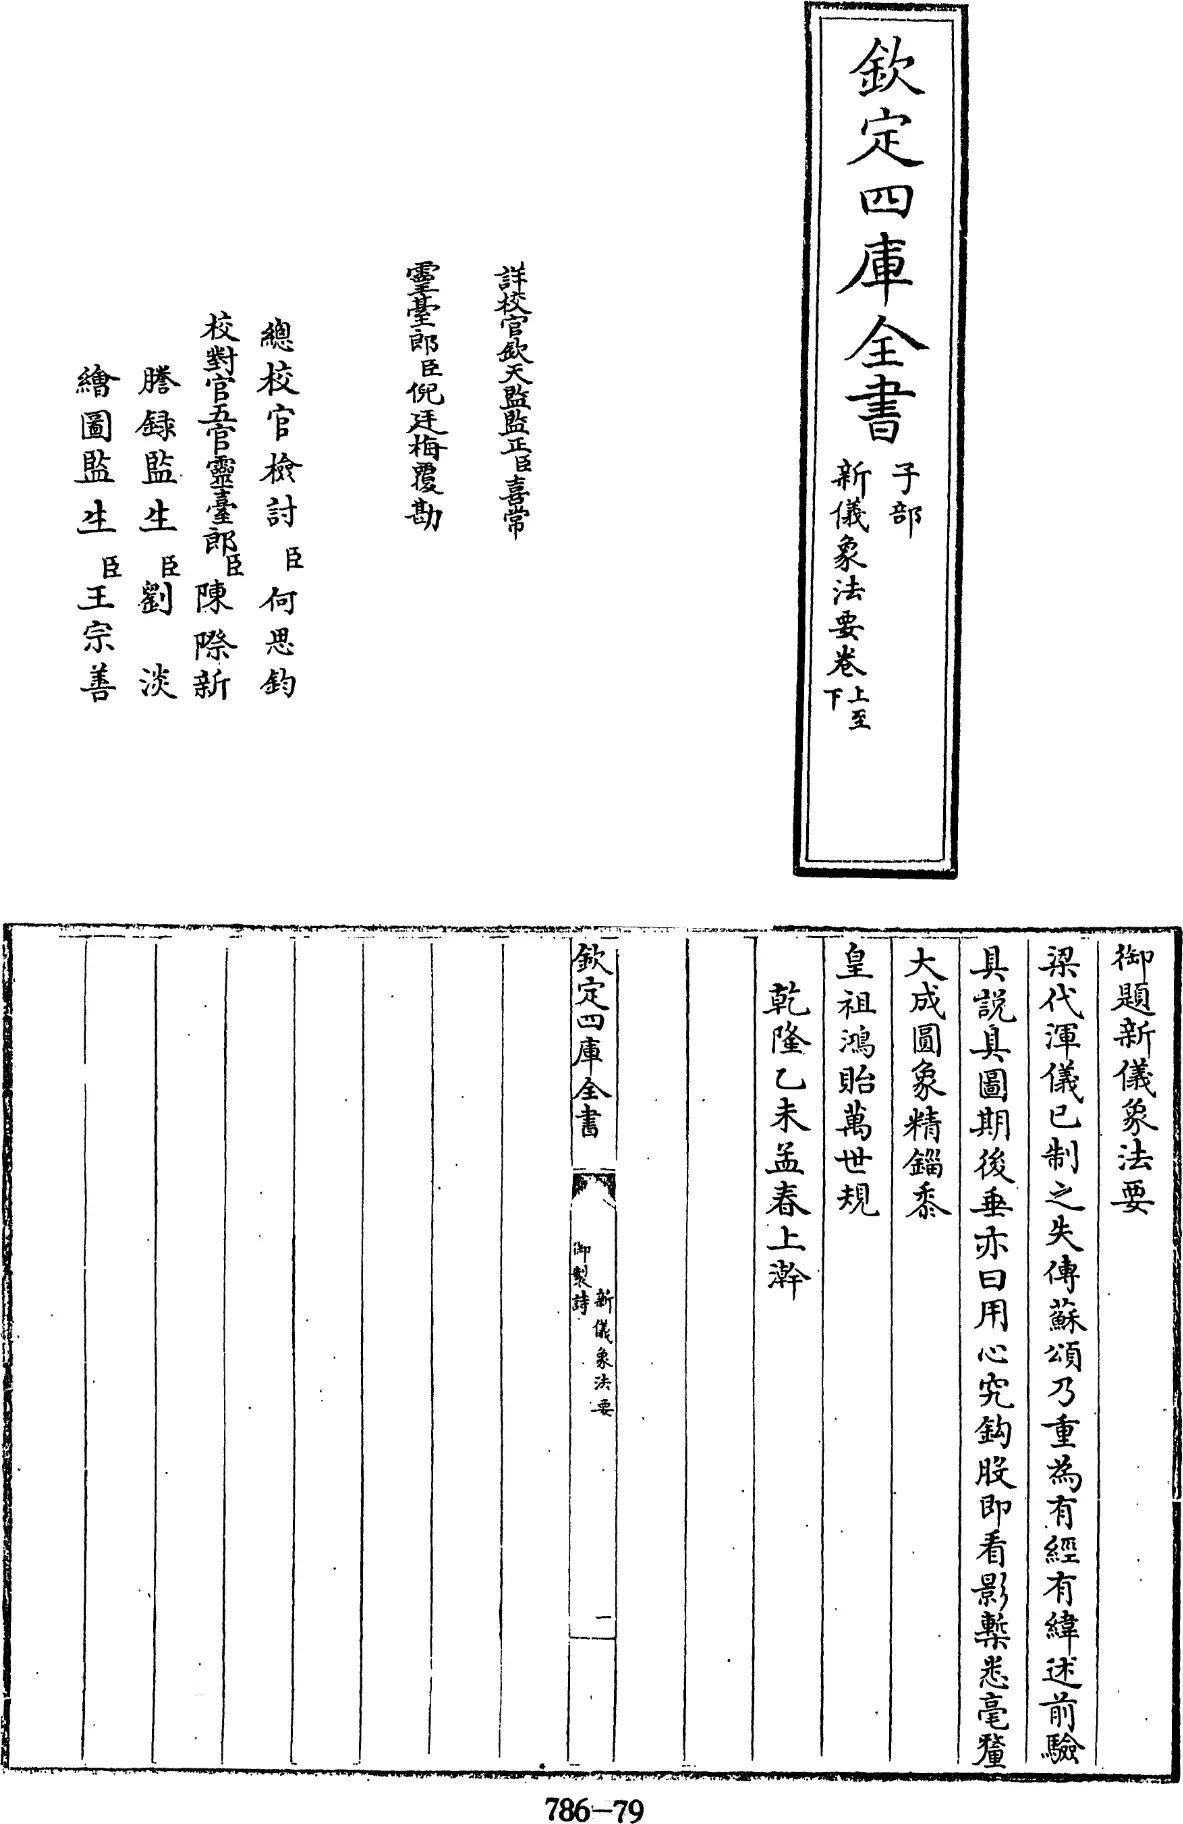 欽定四庫全書
子部
新儀象法要卷上至
下
詳校官欽天監監正臣喜常
靈臺郎臣倪廷梅覆勘
總校官檢討臣何思鈞
校對官五官靈臺郎臣陳際新
謄録監生臣劉淡
繪圖監生臣王宗善
御題新儀象法要
梁代渾儀已制之失傳蘇頌乃重為有經有緯述前驗
具說具圖期後垂亦曰用心究鈎股即看影槧悉毫釐
大成圓象精錙黍
皇祖鴻貽萬世規
乾隆乙未孟春上澣
欽定四庫全書
新儀象法要
御製詩
一
786-79